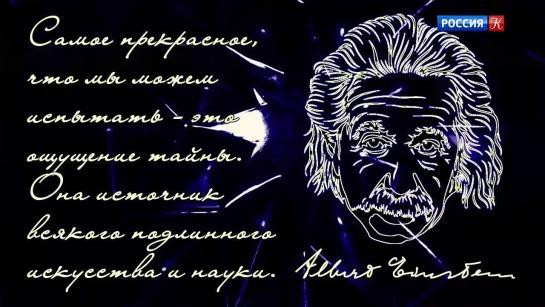 РОССИЯ К
Самое прекрасное,
что мы можем
испытать - это
ощущение тайны.
Она источник
всякого подлинного
искусства и науки.
Albert Einstein